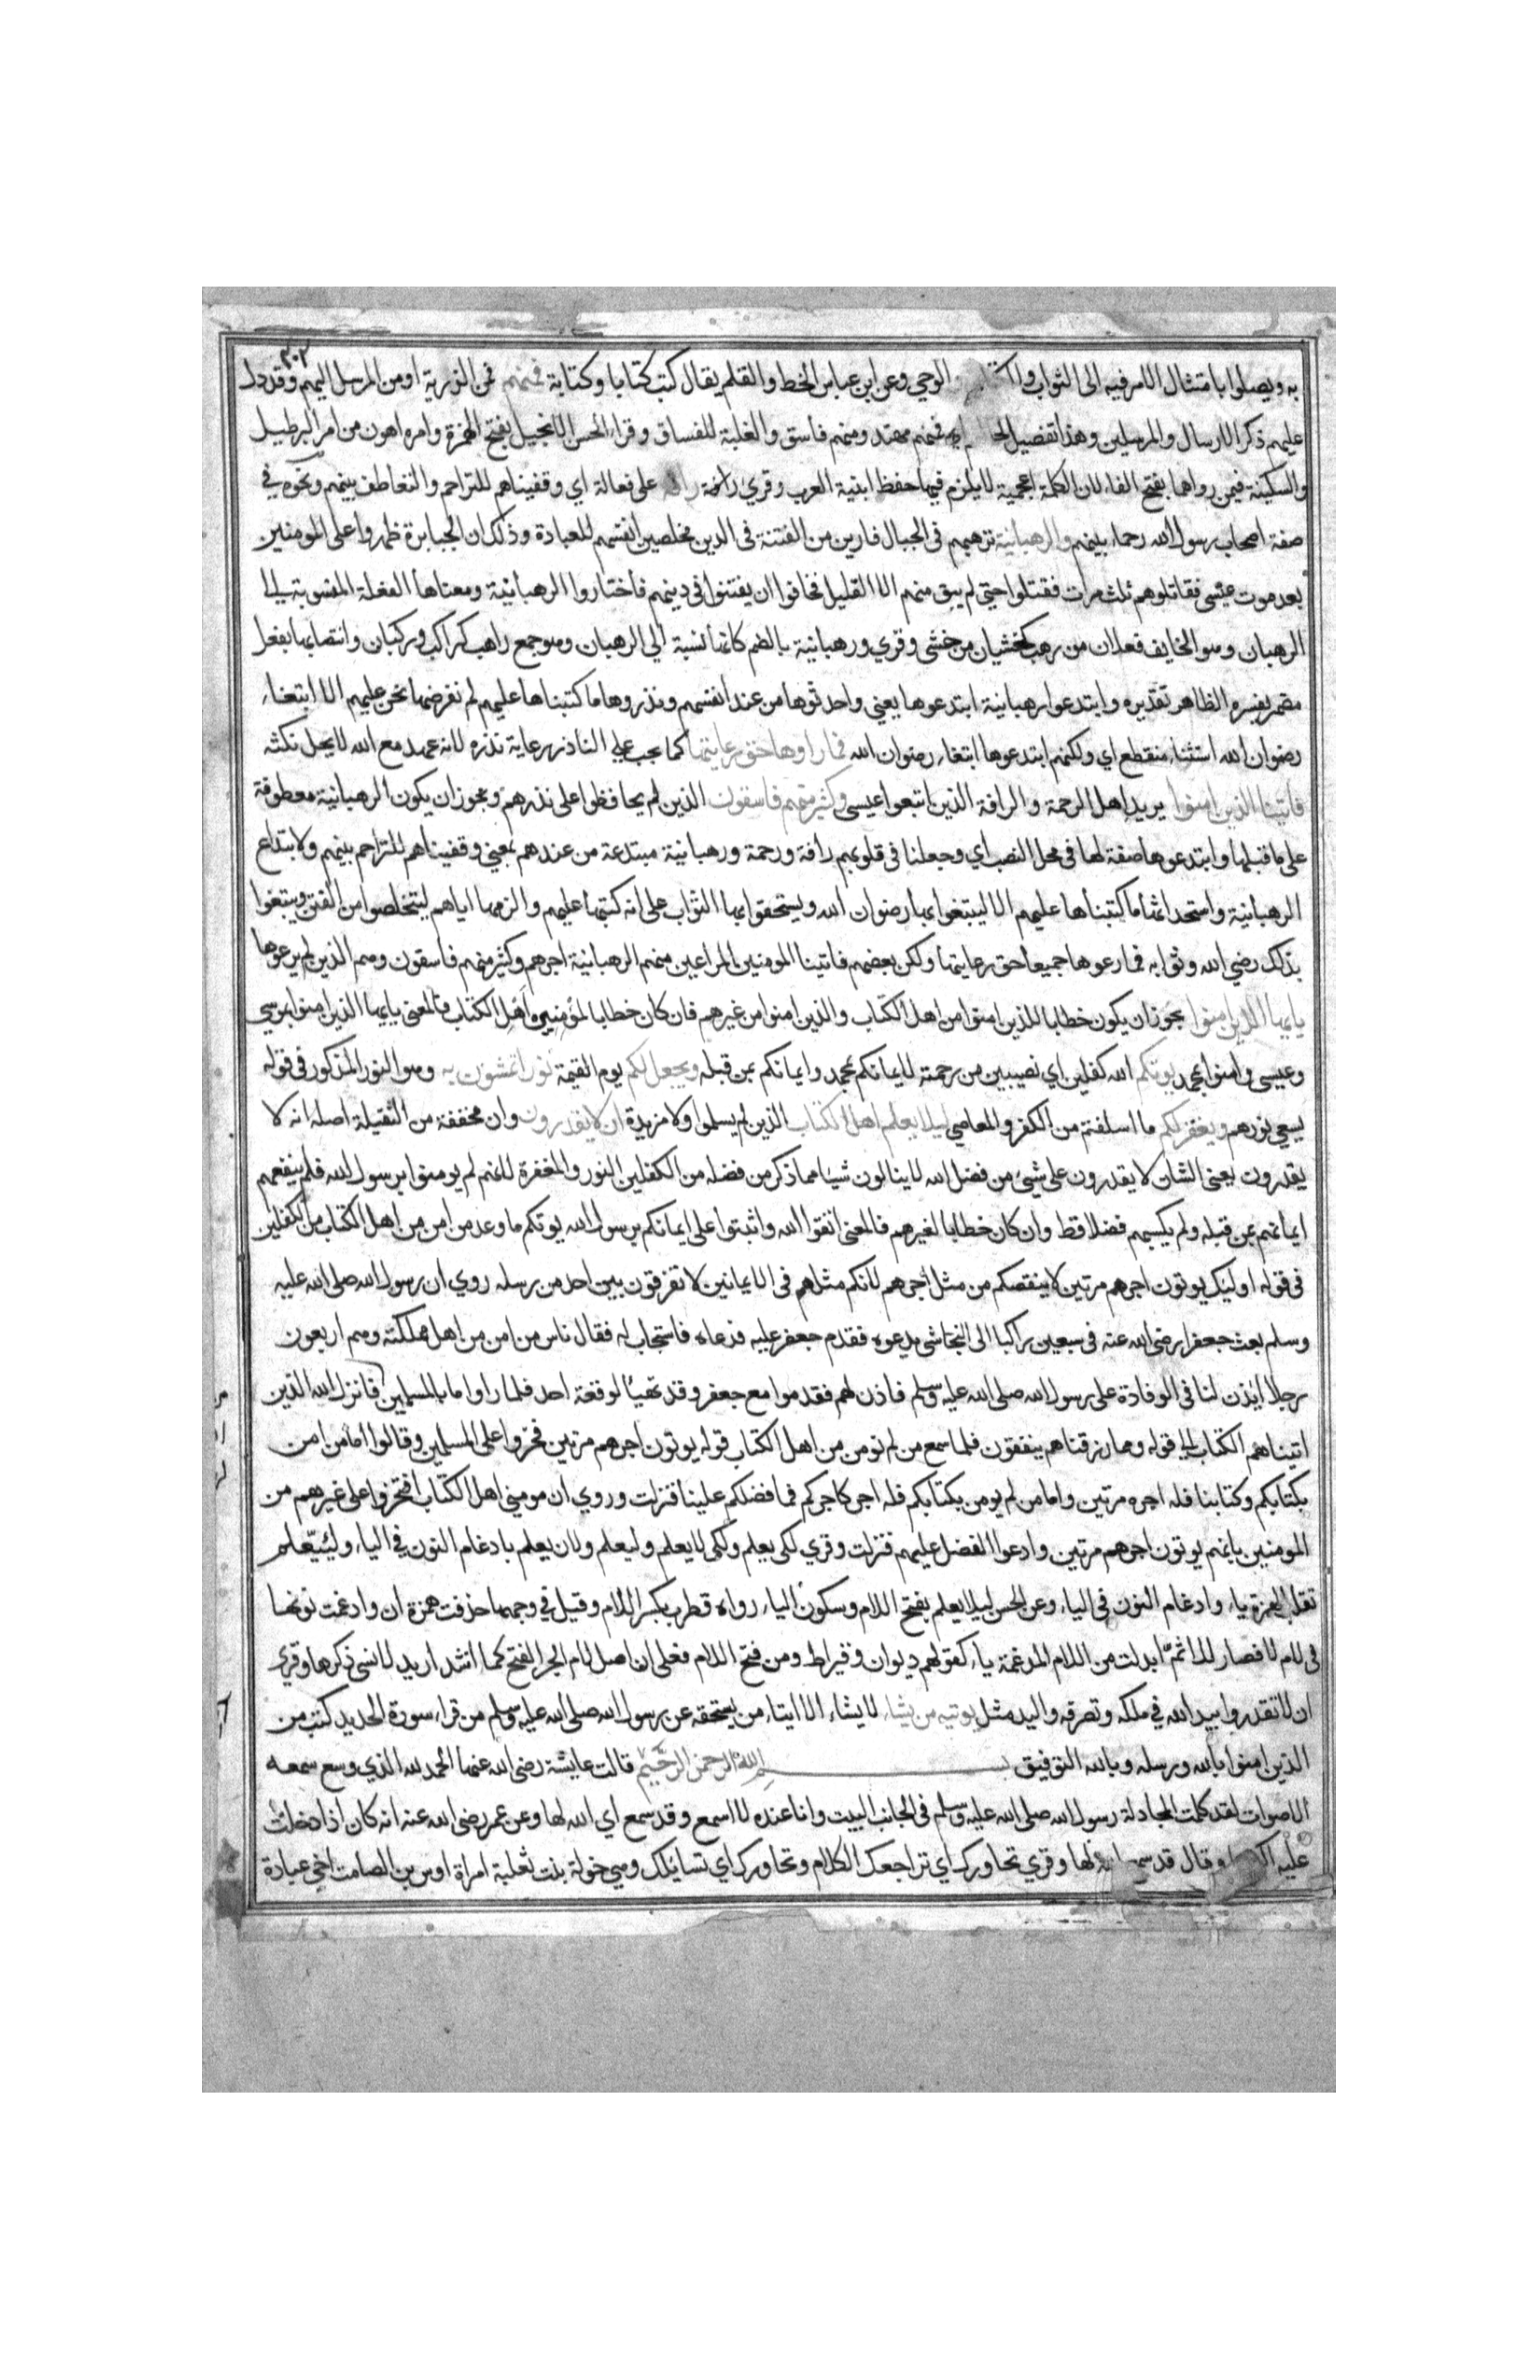 ٣٠٢
به ويصلوا بامتثال الامر فيه الى الثواب والكتاب الوحي وعن ابن عباس الخط والقلم يقال كتب كتابا وكتابة فمنهم فمن الذرية او من المرسل اليهم وقد دل
عليهم ذكر الارسال والمرسلين وهذا تفصيل لحالهم اي فمنهم مهتد ومنهم فاسق والغلبة للفساق وقراء الحسن الانجيل بفتح الهمزة وامره اهون من امر البرطيل
والسكينة فيمن رواهما بفتح الفاء لان الكلمة اعجمية لا يلزم فيها حفظ ابنية العرب وقري رافة على فعالة اي وقفيناهم للتراحم والتعاطف بينهم ونحوه في
صفة اصحاب رسول الله رحماء بينهم والرهبانية ترهبهم في الجبال فارين من الفتنة في الدين مخلصين انفسهم للعبادة وذلك ان الجبابرة ظهروا على المومنين
بعد موت عيسى فقاتلوهم ثلث مرات فقتلوا حتي لم يبق منهم الا القليل فخافوا ان يفتنوا في دينهم فاختاروا الرهبانية ومعناها الفعلة المنسوبة الي
الرهبان وهو الخايف فعلان من رهب كخشيان من خشي وقري ورهبانية بالضم كانها نسبة الي الرهبان وهو جمع راهب كراكب وركبان وانتصابها بفعل
مضمر يفسره الظاهر تقديره وابتدعوا رهبانية ابتدعوها يعني واحدثوها من عند انفسهم ونذروها ما كتبناها عليهم لم نفرضها نحن عليهم الا ابتغاء
رضوان الله استثناء منقطع اي ولكنهم ابتدعوها ابتغاء رضوان الله فما راوها حق رعايتها كما يجب علي الناذر رعاية نذره لانه عهد مع الله لا يحل نكثه
فاتينا الذين امنوا يريد اهل الرحمة والرافة الذين اتبعوا عيسى وكثير منهم فاسقون الذين لم يحافظوا على نذرهم ويجوز ان يكون الرهبانية معطوفة
على ما قبلها وابتدعوها صفة لها في محل النصب اي وجعلنا في قلوبهم رافة ورحمة ورهبانية مبتدعة من عندهم بمعني وقفيناهم للتراحم بينهم ولابتداع
الرهبانية واستحداثها ما كتبناها عليهم الا ليبتغوا بها رضوان الله ويستحقوا بها الثواب على انه كتبها عليهم والزمها اياهم ليتخلصوا من الفتن ويبتغوا
بذلك رضي الله وثوابه فما رعوها جميعا حق رعايتها ولكن بعضهم فاتينا المومنين المراعين منهم الرهبانية اجرهم وكثير منهم فاسقون وهم الذين لم يرعوها
يايها الذين امنوا يجوز ان يكون خطابا للذين امنوا من اهل الكتاب والذين امنوا من غيرهم فان كان خطابا لمؤمنين اهل الكتاب فالمعنى يايها الذين امنوا بموسي
وعيسى وامنوا بمحمد يوتكم الله كفلين اي نصيبين من رحمته لايمانكم بمحمد وايمانكم بمن قبله ويجعل لكم يوم القيمة نورا تمشون به وهو النور المذكور في قوله
يسعي نورهم ويغفر لكم ما اسلفتم من الكفر والمعاصي ليلا يعلم اهل الكتاب الذين لم يسلموا ولا مزيدة ان لا يقدرون وان مخففة من الثقيلة اصله انه لا
يقدرون يعني الشان لا يقدرون على شيئ من فضل الله لا ينالون شيئا مما ذكر من فضله من الكفلين النور والمغفرة لانهم لم يومنوا برسول الله فلم ينفعهم
ايمانهم بمن قبله ولم يكسبهم فضلا قط وان كان خطابا لغيرهم فالمعنى اتقوا الله واثبتوا على ايمانكم برسول الله يوتكم ما وعد من امن من اهل الكتاب من الكفلين
في قوله اوليك يوتون اجرهم مرتين لا ينقصكم من مثل اجرهم لانكم مثلهم في الايمانين لا تفرقون بين احد من رسله روي ان رسول الله صلى الله عليه
وسلم بعث جعفرا رضي الله عنه في سبعين راكبا الى النجاشي يدعوه فقدم جعفر عليه فدعاه فاستجاب له فقال ناس من امن من اهل مملكته وهم اربعون
رجلا ايذن لنا في الوفادة على رسول الله صلى الله عليه وسلم فاذن لهم فقدموا مع جعفر وقد تهيا لوقعة احد فلما راوا ما بالمسلمين فانزل الله الذين
اتيناهم الكتاب الي قوله ومما رزقناهم ينفقون فلما سمع من لم يومن من اهل الكتاب قوله يوتون اجرهم مرتين فخروا على المسلمين وقالوا اما من امن
بكتابكم وكتابنا فله اجره مرتين واما من لم يومن بكتابكم فله اجر كاجركم فما فضلكم علينا فنزلت وروي ان مومني اهل الكتاب افتخروا على غيرهم من
المومنين بانهم يوتون اجرهم مرتين وادعوا الفضل عليهم فنزلت وقري لكي يعلم ولكي لا يعلم وليعلم ولان يعلم بادغام النون في الياء وليئيّعلم
تقلب الهمزة ياء وادغام النون في الياء وعن الحسن ليلا يعلم بفتح اللام وسكون الياء رواه قطرب بكسر اللام وقيل في وجهها حذفت همزة ان وادغمت نونها
في لام لا فصار للا ثم ابدلت من اللام المدغمة ياء كقولهم ديوان وقيراط ومن فتح اللام فعلى ان اصل لام الجر الفتح كما انشد اريد لانسى ذكرها وقري
ان لا تقدروا بيد الله في ملكه وتصرفه واليد مثل يوتيه من يشاء لا يشاء الا ايتاء من يستحقه عن رسول الله صلى الله عليه وسلم من قراء سورة الحديد كتب من
الذين امنوا بالله ورسله وبالله التوفيق بسم الله الرحمن الرحيم قالت عايشة رضي الله عنها الحمد لله الذي وسع سمعه
الاصوات لقد كلمت المجادلة رسول الله صلى الله عليه وسلم في الجانب البيت وانا عنده لا اسمع وقد سمع اي الله لها وعن عمر رضي الله عنه انه كان اذا دخلت
عليه اكرمها وقال قد سمع الله لها وقري تحاورك اي تراجعك الكلام وتحاورك اي تسايلك وهي خولة بنت ثعلبة امراة اوس بن الصامت اخي عبادة